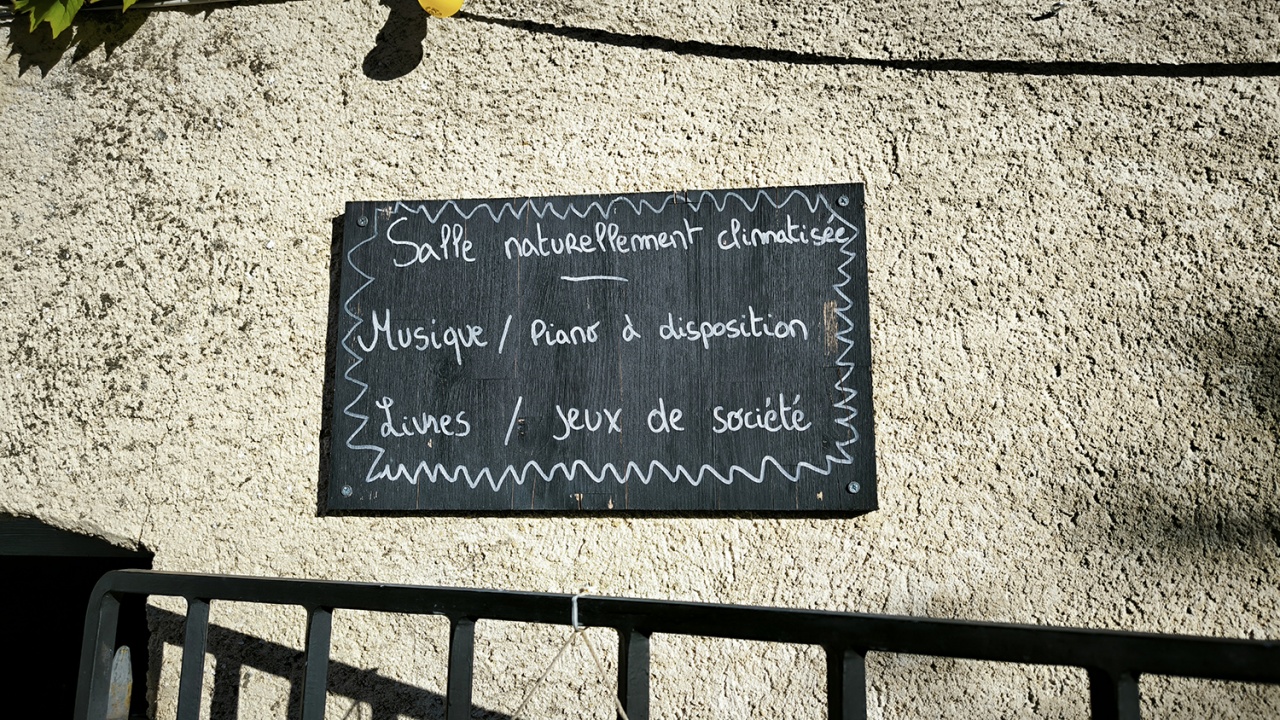 Salle naturellement climatisée
Musique / Piano à disposition
Livres / Jeux de société